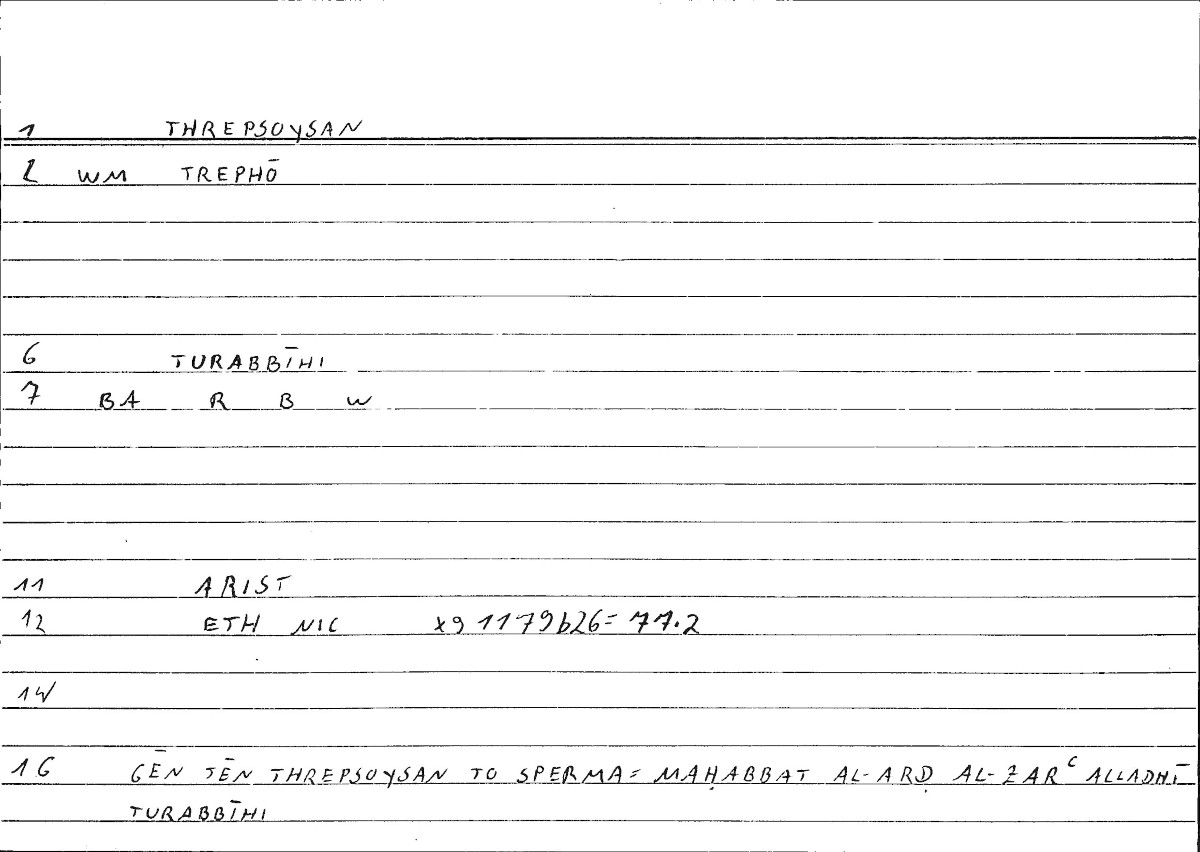 1 THREPSOYSAN
2 WM TREPHŌ
6 TURABBĪHI
7 BA R B W
11 ARIST
12 ETH NIC X9 1179b26= 77.2
14
16 GĒN TĒN THREPSOYSAN TO SPERMA= MAḤABBAT AL-ARḌ AL-ZARᶜ ALLADHĪ
TURABBĪHI